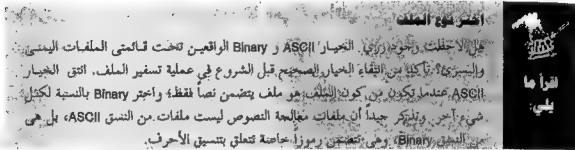 اختر نوع الملف
هل لاحظت وجود زري الخيار ASCII و Binary الواقعين تحت قائمتي الملفات اليمنى
واليسرى؟ تأكد من انتقاء الخيار الصحيح قبل الشروع في عملية تسفير الملف. انتق الخيار
ASCII عندما تكون من كون الملف هو ملف يتضمن نصاً فقط؛ واختر Binary بالنسبة لكل
شيء آخر. وتذكر جيداً أن ملفات معالجة النصوص ليست ملفات من النسق ASCII، بل هي
من النسق Binary، وهي تتضمن رموزاً خاصة تتعلق بتنسيق الأحرف.
اقرأ ما
يلي: